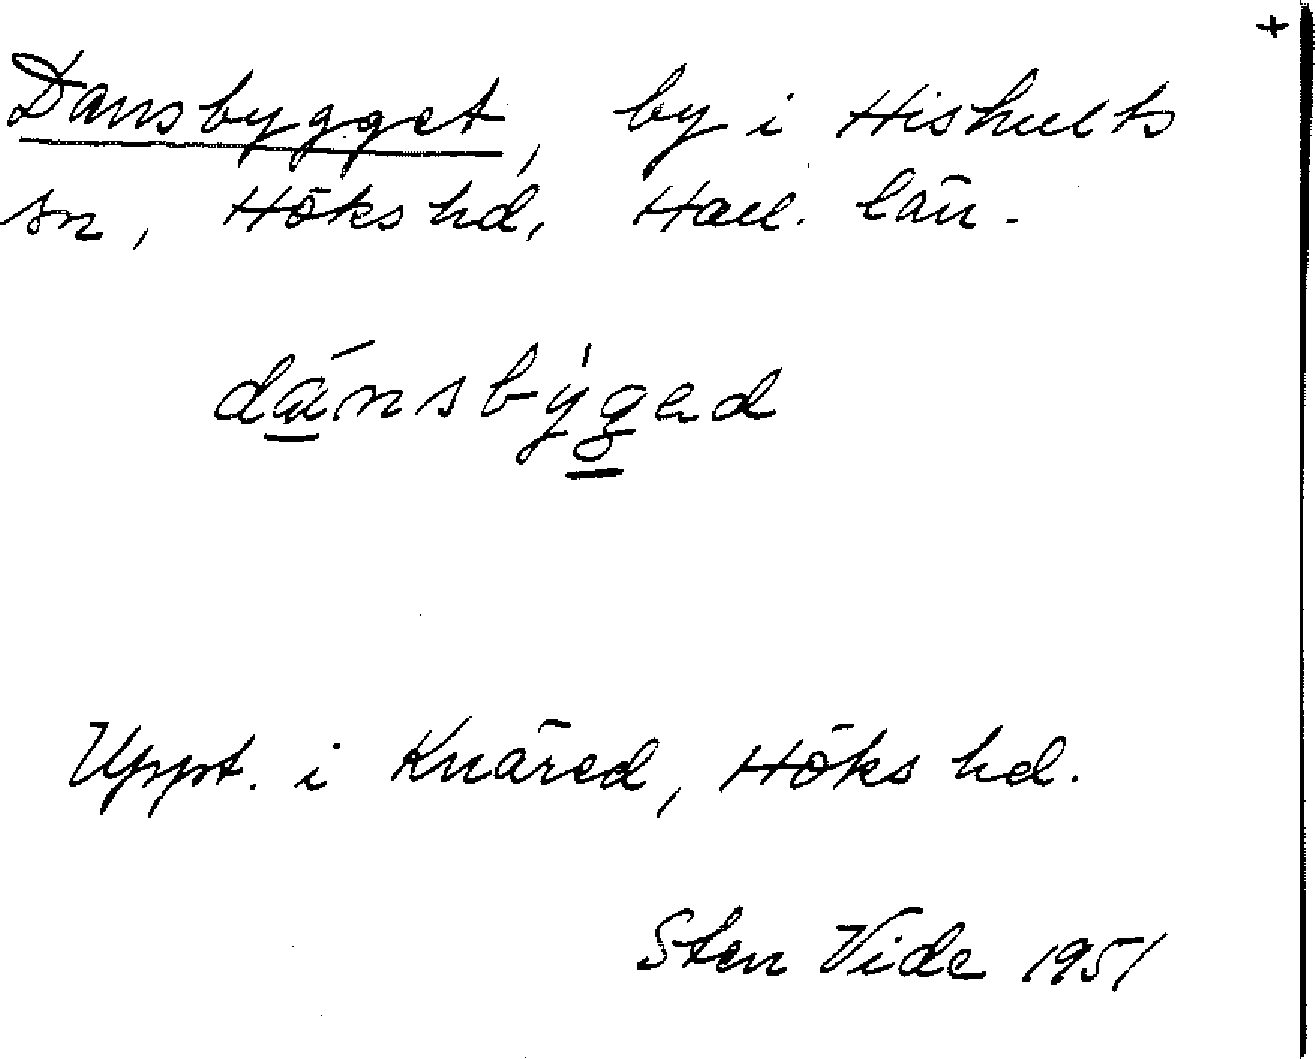 +
Dansbygget, by i Hishults
sn, Höks hd, Hall. län.
dánsbýgad
Uppt. i Knäred, Höks hd.
Sten Vide 1951